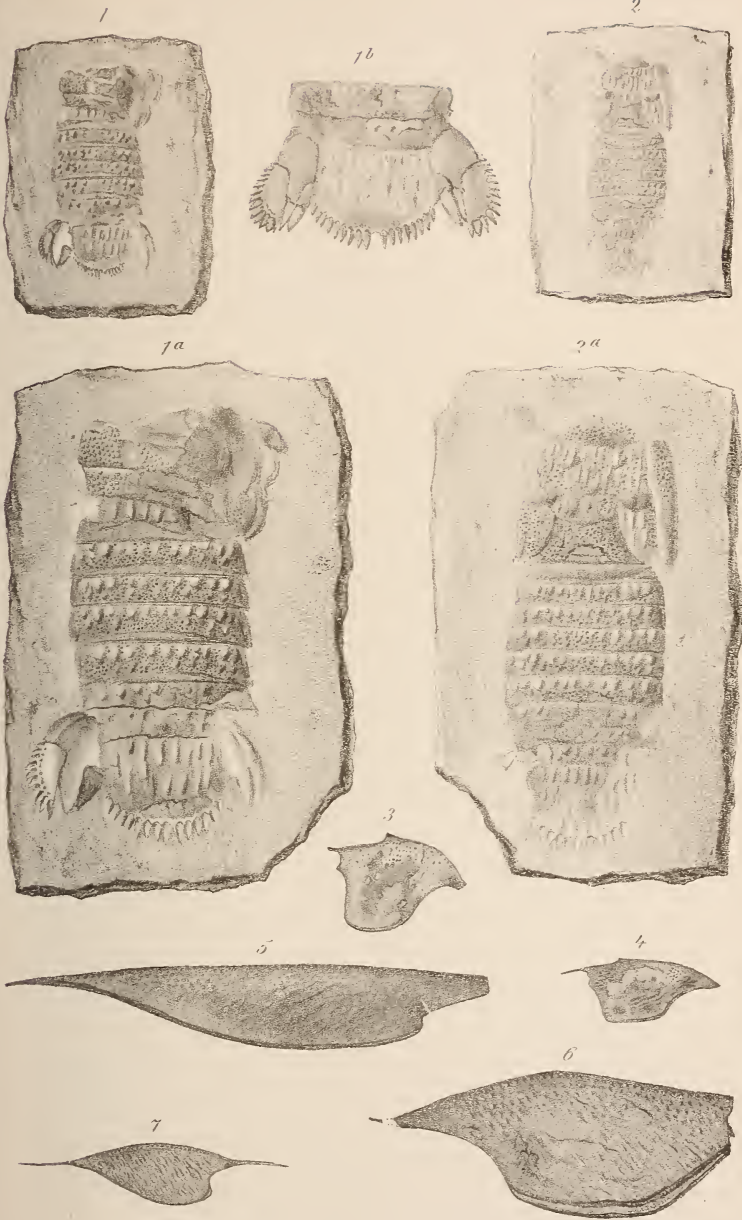 1
1b
2
1a
2a
3
5
4
6
7